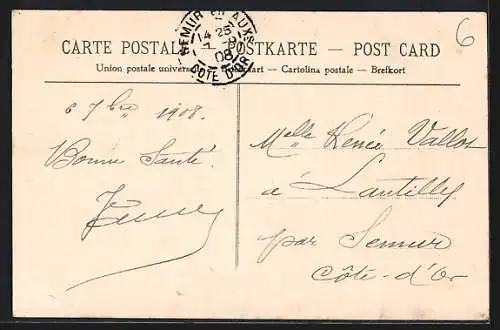 CARTE POSTALE — POSTKARTE — POST CARD
Union postale — Cartolina postale — Brefkort
SEMUR EN AUXOIS
14 25
08
COTE D'OR
6
6 7bre 1908.
Bonne Santé.
Melle Renée Vallot
à Lantilly
par Semur
Côte-d'Or